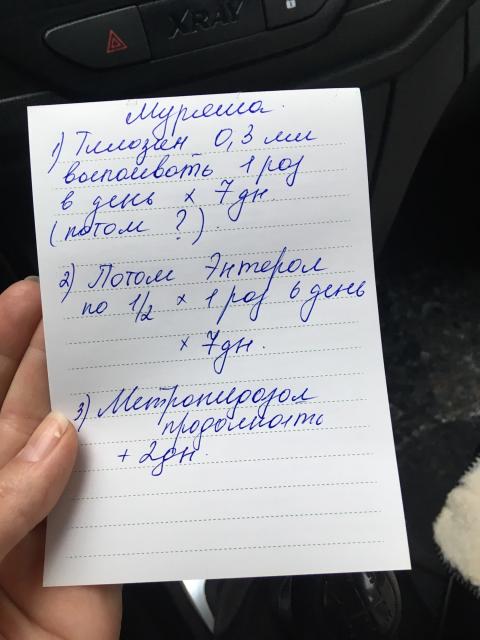 XRAY
Муряша.
1) Тилозин 0,3 мл
выпаивать 1 раз
в день х 7дн.
(потом ?).
2) Потом Энтерол
по 1/2 х 1 раз в день
х 7дн.
3) Метронидозол
продолжать
+ 2дн.